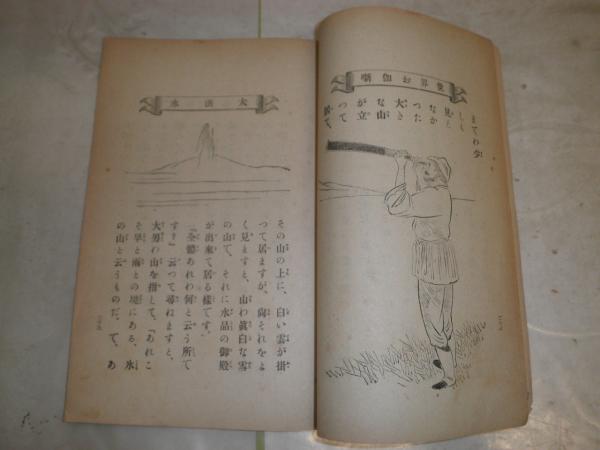 世界お伽噺
までわ少
しも
見え
なか
つた
大き
な山
が立
つて
居て、
大洪水
その山の上に、白い雲が掛
つて居ますが、尙それをよ
く見ますと、山わ眞白な雪
の山で、それに水晶の御殿
が出來て居る樣です。
『全體あれわ何と云う所で
す？』云つて尋ねますと、
大男わ山を指して、『あれこ
そ旱と雨との境にある、氷
の山と云うものだ。で、あ